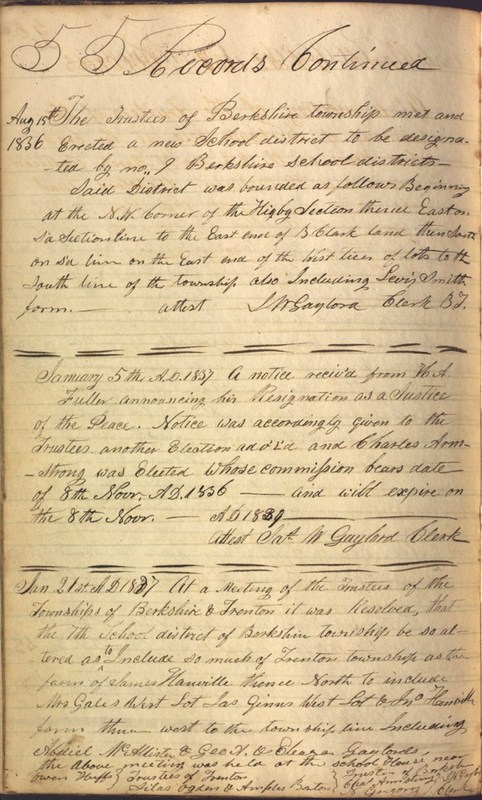 55 Records Continued
Aug 15th The Trustees of Berkshire township met and
1836 Erected a new School district to be designa-
-ted by no,, 9 Berkshire School districts
Said District was bounded as follows Beginning
at the N.W. Corner of the Higby Section thence East on
S'd Section line to the East end of B Clark land then South
on S'd line on the East end of the West tier of lots to the
South line of the township also Including Lewis Smith
farm. — attest J W Gaylord Clerk BT.
January 5th A.D. 1837 A notice reciv'd from W. A.
Fuller announcing his Resignation as a Justice
of the Peace. Notice was accordingly given to the
Trustees another Election and Charles Arm-
-strong was Elected whose commission bears date
of 8th Novr. A.D. 1836 — and will expire on
the 8th Novr. — AD 1839
attest W Gaylord Clerk
Jan 21st A D 1837 At a Meeting of the Trustees of the
Townships of Berkshire & Trenton it was Resolved, that
the 7th School district of Berkshire township be so al-
tered as to Include so much of Trenton township as the
farm of James thence North to include
Mrs Gales West Lot Jas West Lot &
farm thence west to the township line Including
McAllister & Geo. & Gaylords
the above meeting was held at the school House near
Owen Trustees of Trenton
Silas Ogden & Trustees of Berkshire
Armstrong
Clerk